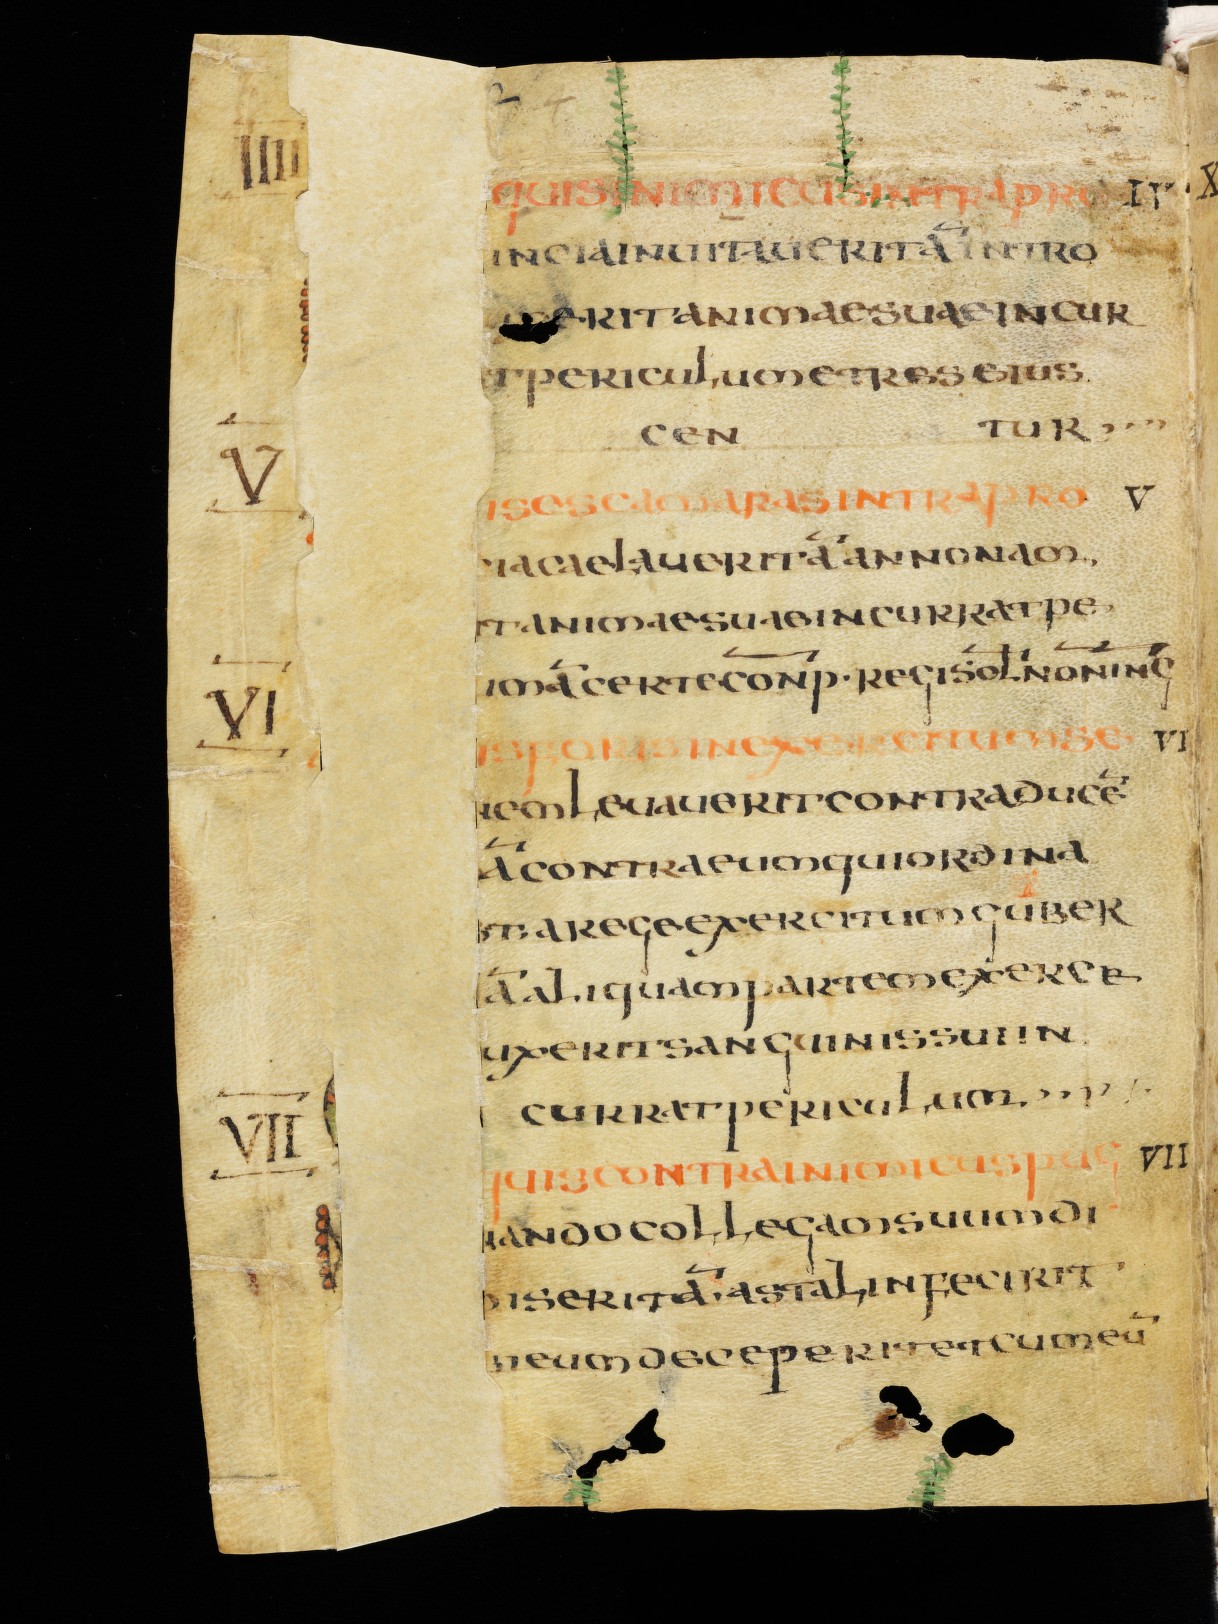 IIII
V
VI
VII
QUISINIMICUSINTRAPRO IV
INCIAINUITAUERITA̅INTRO
ERITANIMAESUAEINCUR
TPERICULUMETRESEIUS
CEN TUR
ISESCAMARASINTRAPRO V
IACAELAUERITA̅ANNONAM
TANIMAESUAEINCURRATPE
IMA̅CERTECONP·REGISOL̅NONING
INEXERCITUMSE VI
EMLEUAUERITCONTRADUCE̅
A̅CONTRAEUMQUIORDINA
TAREGEEXERCITUMGUBER
A̅ALIQUAMPARTEMEXERCE
UXERITSANGUINISSUIIN
CURRATPERICULUM
QUISCONTRAINIMICUSPUG VII
ANDOCOLLEGAMSUUMDI
ISERITA̅ASTALINFECIRIT
EUMDECEPERITETCUMEU̅